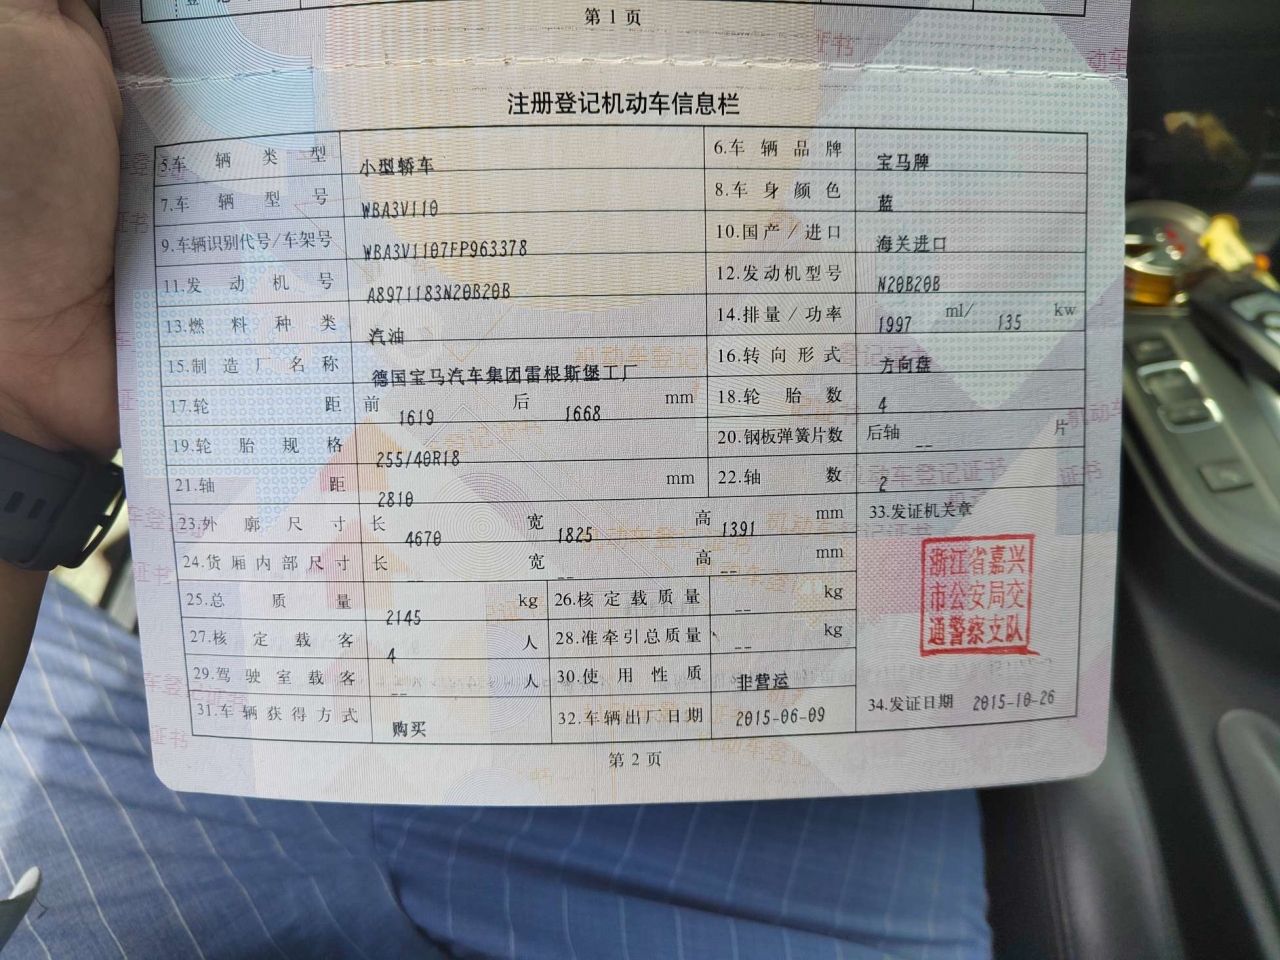 第 1 页
注册登记机动车信息栏
5.车辆类型 小型轿车 6.车辆品牌 宝马牌
7.车辆型号 WBA3V110 8.车身颜色 蓝
9.车辆识别代号/车架号 WBA3V1107FP963378 10.国产/进口 海关进口
11.发动机号 A8971183N20B20B 12.发动机型号 N20B20B
13.燃料种类 汽油 14.排量/功率 1997 ml/ 135 kw
15.制造厂名称 德国宝马汽车集团雷根斯堡工厂 16.转向形式 方向盘
17.轮距 前 1619 后 1668 mm 18.轮胎数 4
19.轮胎规格 255/40R18 20.钢板弹簧片数 后轴 -- 片
21.轴距 2810 mm 22.轴数 2
23.外廓尺寸 长 4670 宽 1825 高 1391 mm 33.发证机关章
24.货厢内部尺寸 长 -- 宽 -- 高 -- mm
浙江省嘉兴
市公安局交
通警察支队
25.总质量 2145 kg 26.核定载质量 -- kg
27.核定载客 4 人 28.准牵引总质量 -- kg
29.驾驶室载客 -- 人 30.使用性质 非营运
31.车辆获得方式 购买 32.车辆出厂日期 2015-06-09 34.发证日期 2015-10-26
第 2 页